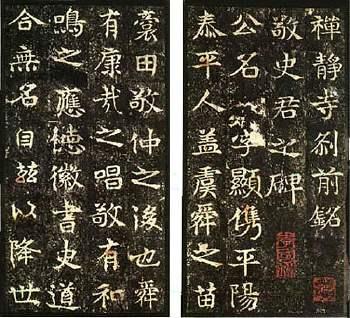 禪静寺刹前銘
敬史君之碑
公名字顯儁平陽
泰平人盖虞舜之苗
裔田敬仲之後也舜
有康哉之唱敬有和
鳴之應德徽書史道
合無名自兹以降世